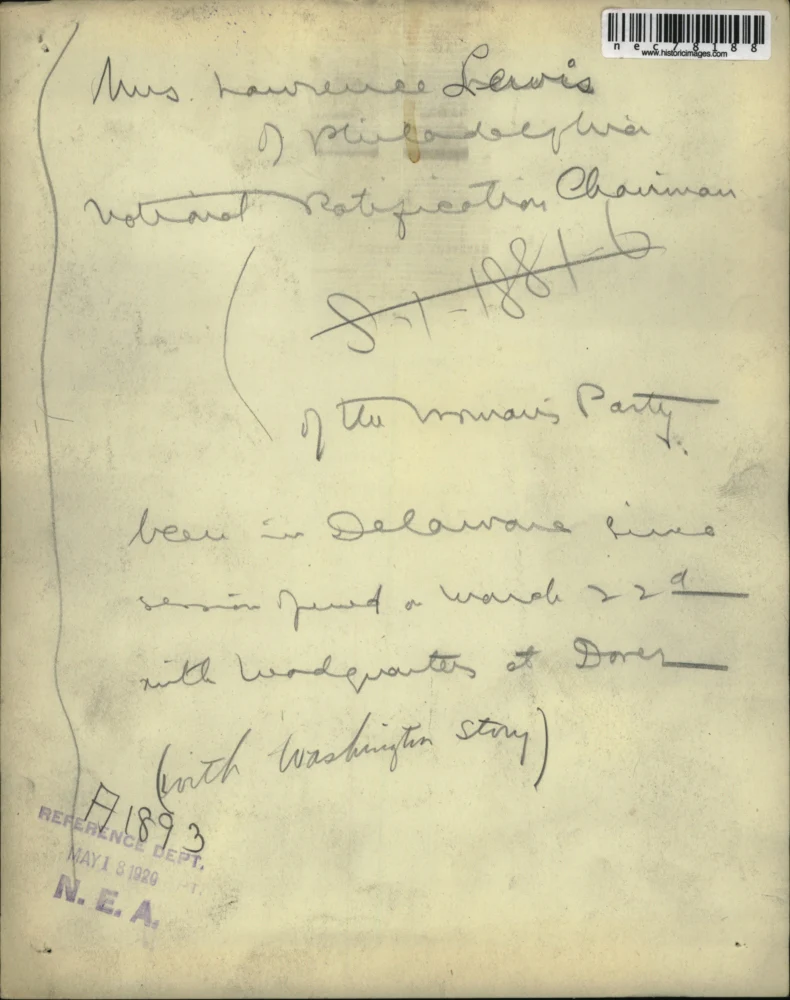 nec78188
www.historicimages.com
Mrs. Lawrence Lewis
of Philadelphia
National Ratification Chairman
8-1-1881-6
of the Woman's Party.
been in Delaware since
session opened on March 22d
with headquarters at Dover
(with Washington story)
A1893
REFERENCE DEPT.
MAY 1 1920
N. E. A.